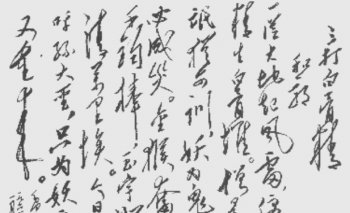 三打白骨精
一从大地起风雷,便
精生白骨堆。僧是
氓犹可训,妖为鬼
必成災。金猴奮
千钧棒,玉宇
清万里埃。今日
呼孙大圣,只为妖
又重来。